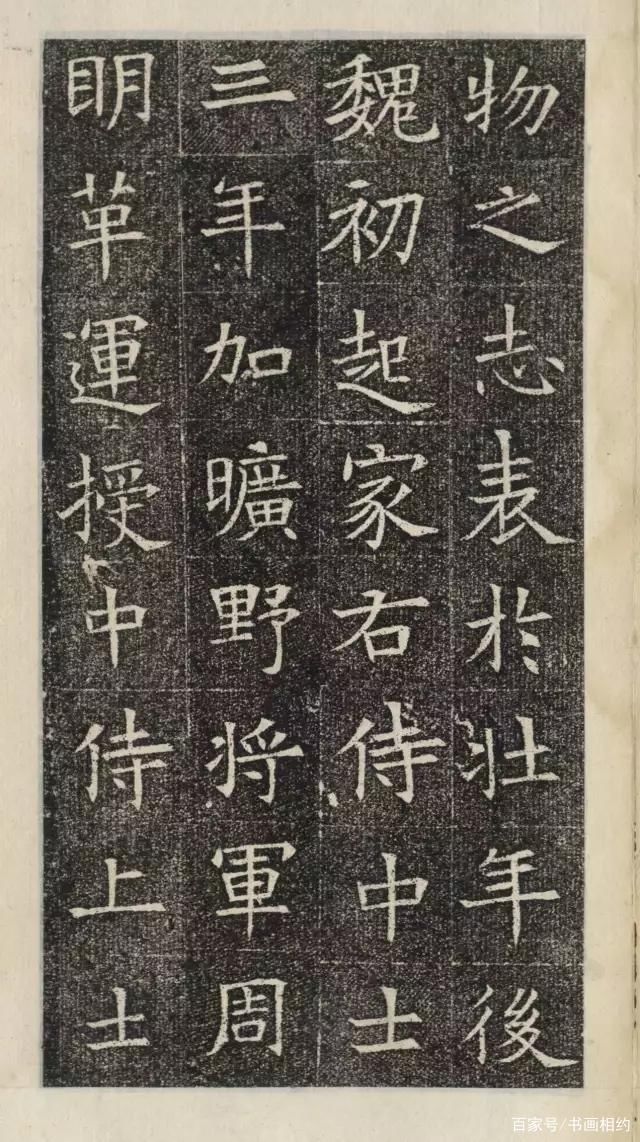 物之志表於壯年後
魏初起家右侍中士
三年加曠野將軍周
明革運授中侍上士
百家号/书画相约